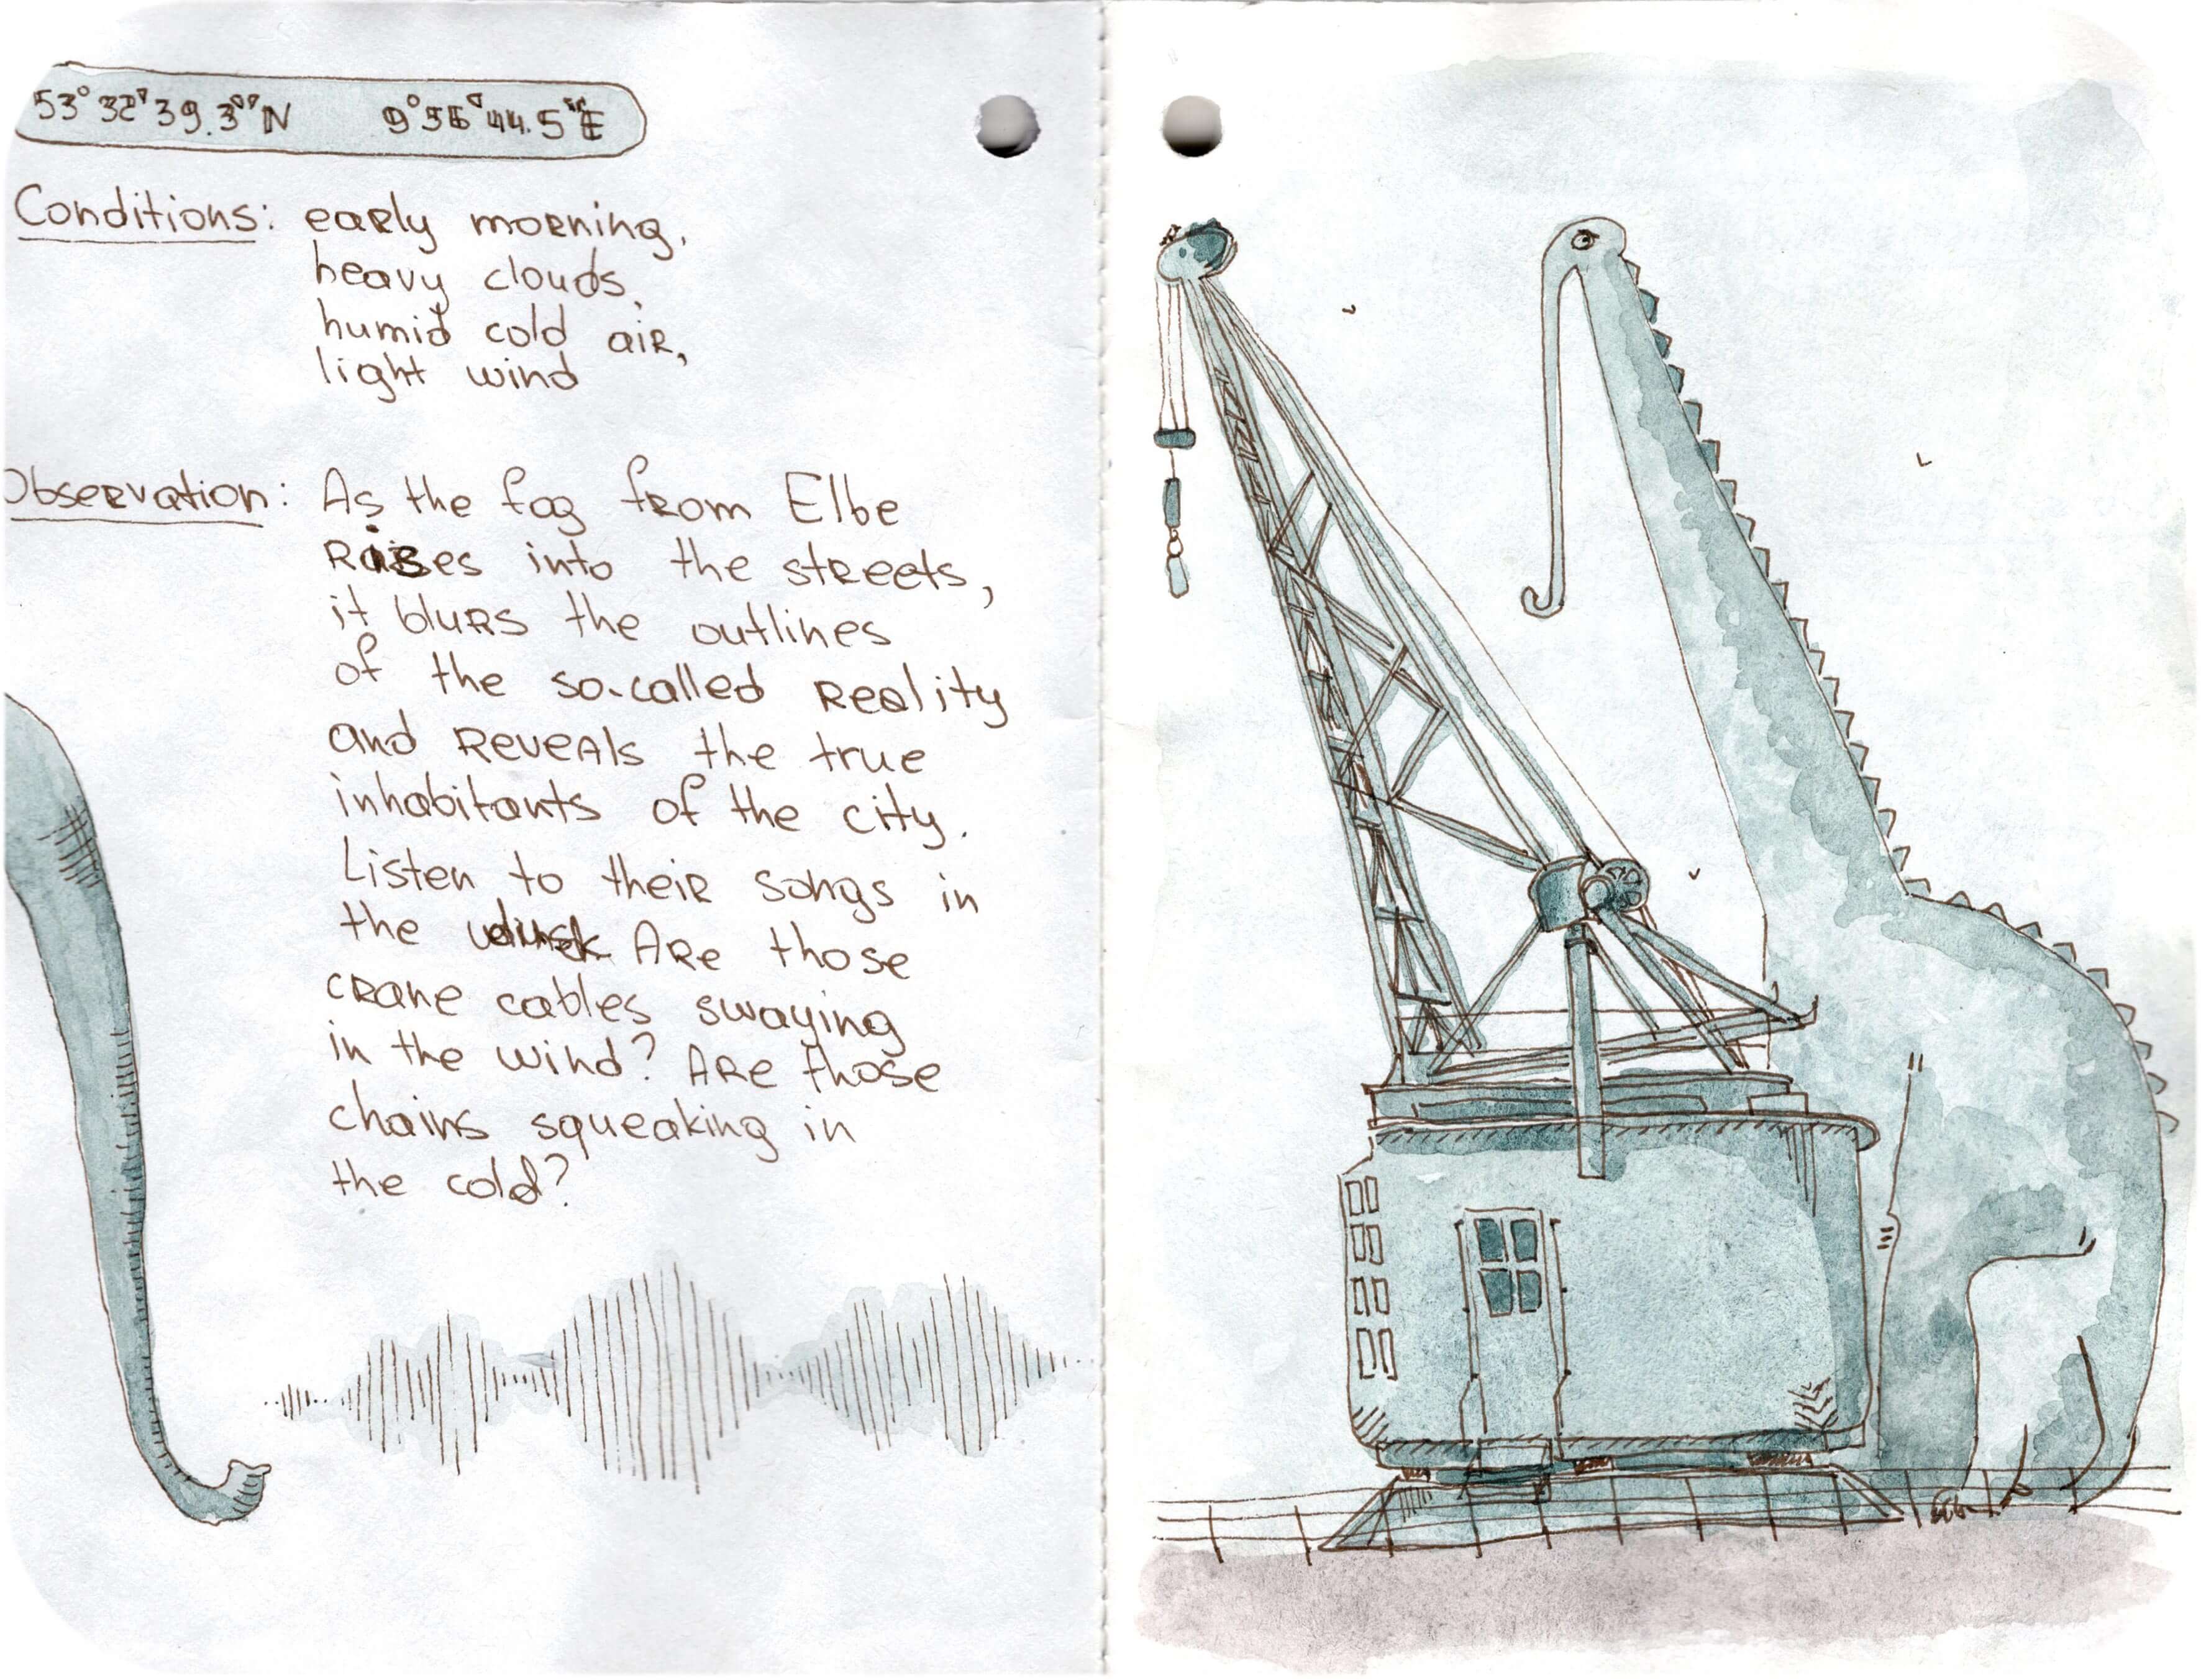 53°32'39.3"N 9°56'44.5"E
Conditions: early morning,
heavy clouds,
humid cold air,
light wind
Observation: As the fog from Elbe
Raises into the streets,
it blurs the outlines
of the so-called Reality
and Reveals the true
inhabitants of the city.
Listen to their songs in
the dusk. Are those
crane cables swaying
in the wind? Are those
chains squeaking in
the cold?